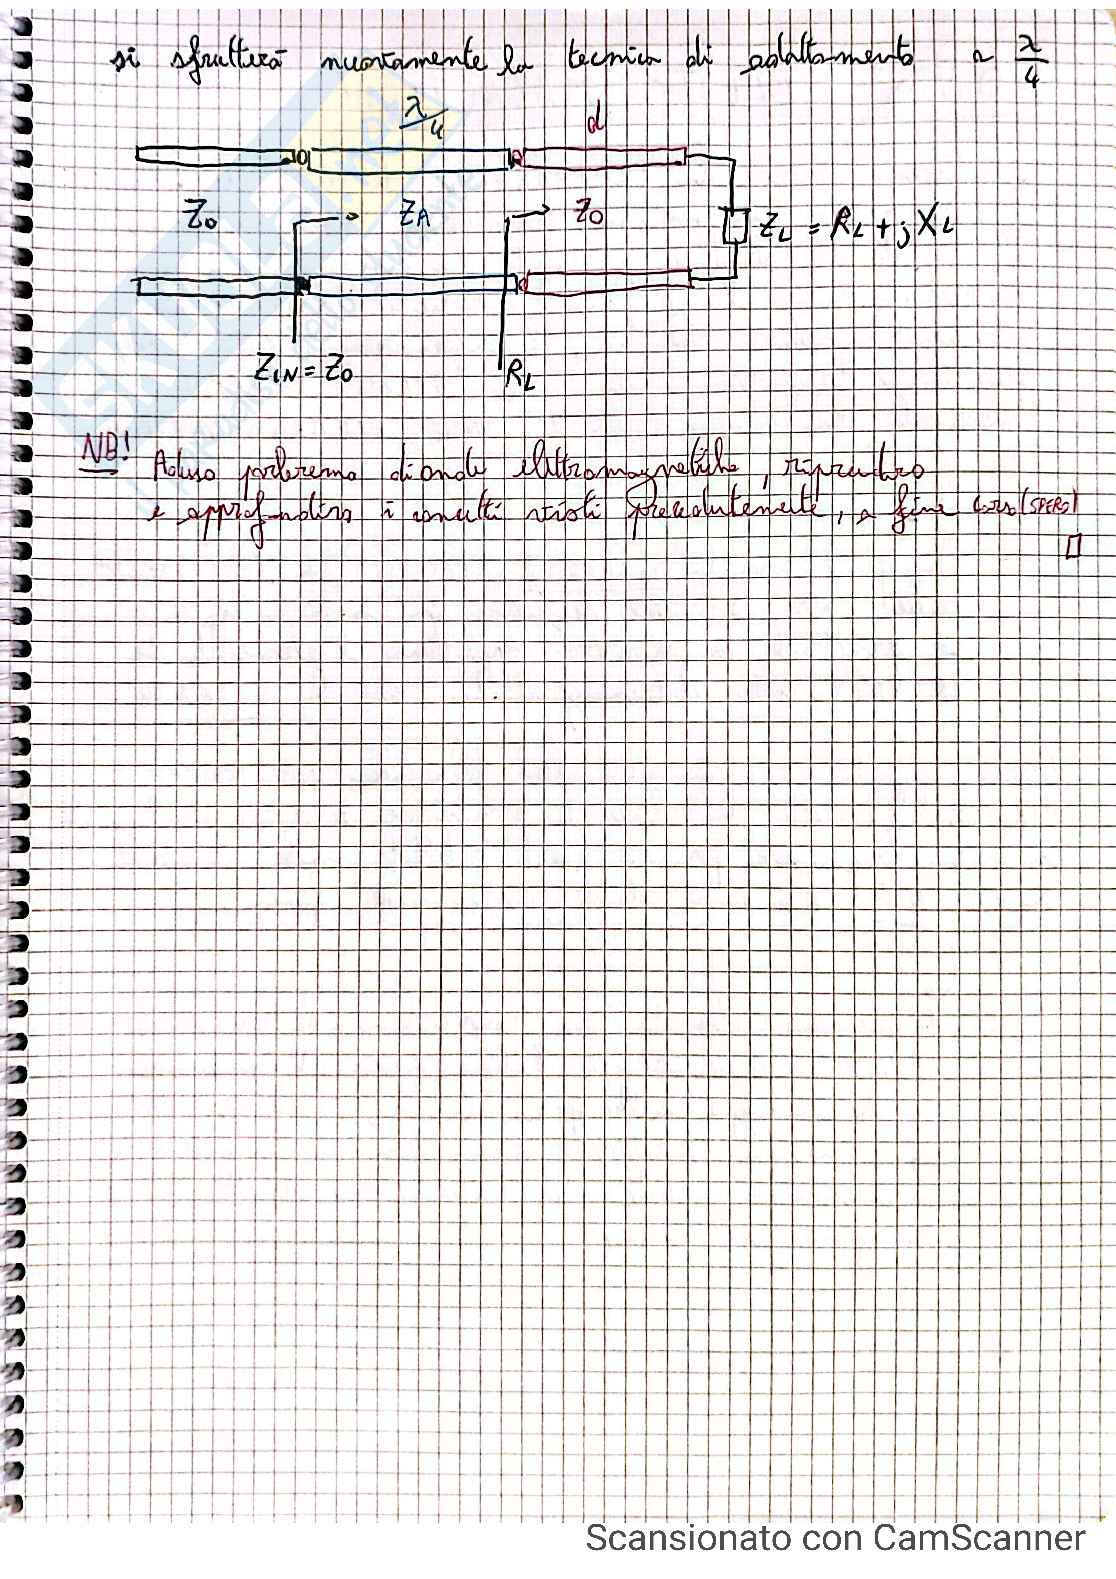 si sfrutterà nuovamente la tecnica di adattamento a λ/4
λ/4 d
Z0 ZA Z0 ZL = RL + jXL
ZIN = Z0 RL
NB! Adesso parleremo di onde elettromagnetiche, riprendero
e approfondiro i concetti visti precedentemente, a fine corso (SPERO)
Scansionato con CamScanner